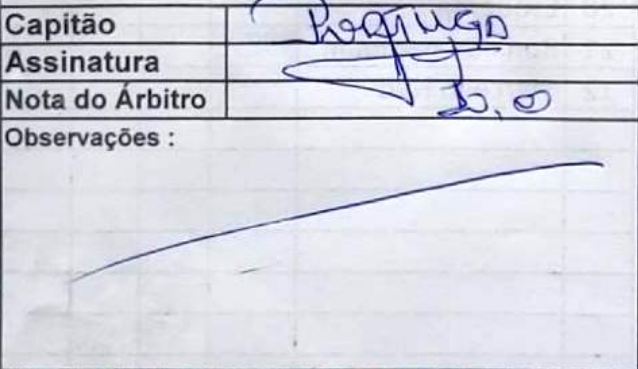 Capitão
Assinatura
Nota do Árbitro 10,0
Observações :